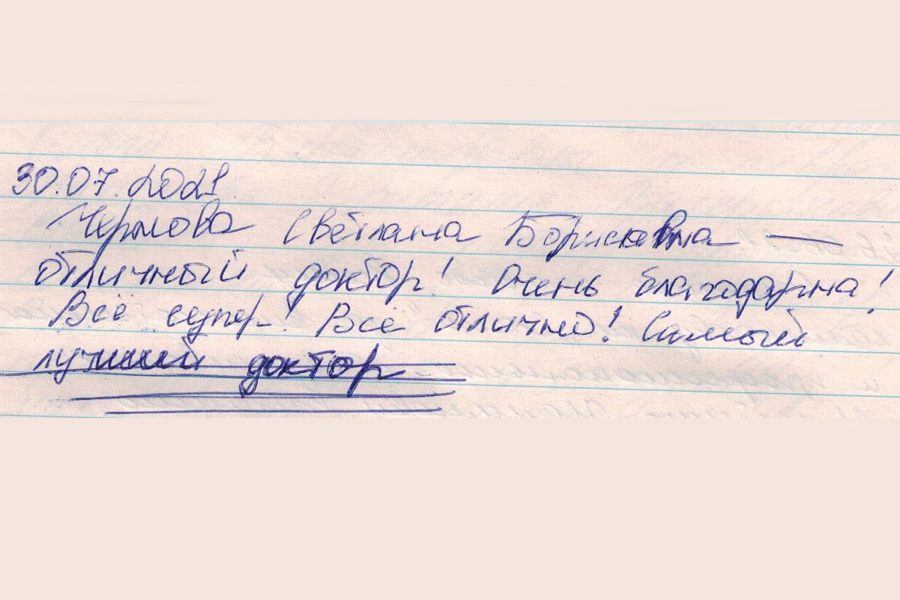 30.07.2021
Чермова Светлана Борисовна —
отличный доктор! Очень благодарна!
Всё супер! Всё отлично! Самый
лучший доктор